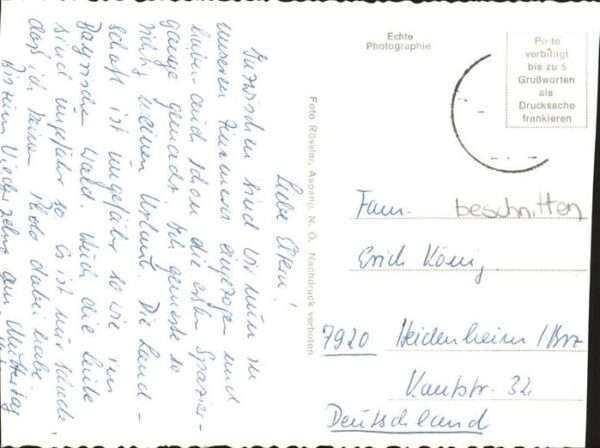 Liebe Eltern!
Inzwischen sind wir nun in
unserem Kurhaus eingezogen und
haben auch schon die ersten Spazier-
gänge gemacht. Ich genieße so
richtig meinen Urlaub. Die Land-
schaft ist ungefähr so wie im
Bayrischen Wald. Auch die Leute
sind ungefähr so. Es ist nur schade
daß ich keine
Bis zum Wiedersehn am Muttertag
Foto Rössler, Aspang, N. Ö. Nachdruck verboten
Echte
Photographie
Porto
verbilligt
bis zu 5
Grußworten
als
Drucksache
frankieren
Fam. beschnitten
Erich König
7920 Heidenheim / Brz
Kantstr. 32
Deutschland